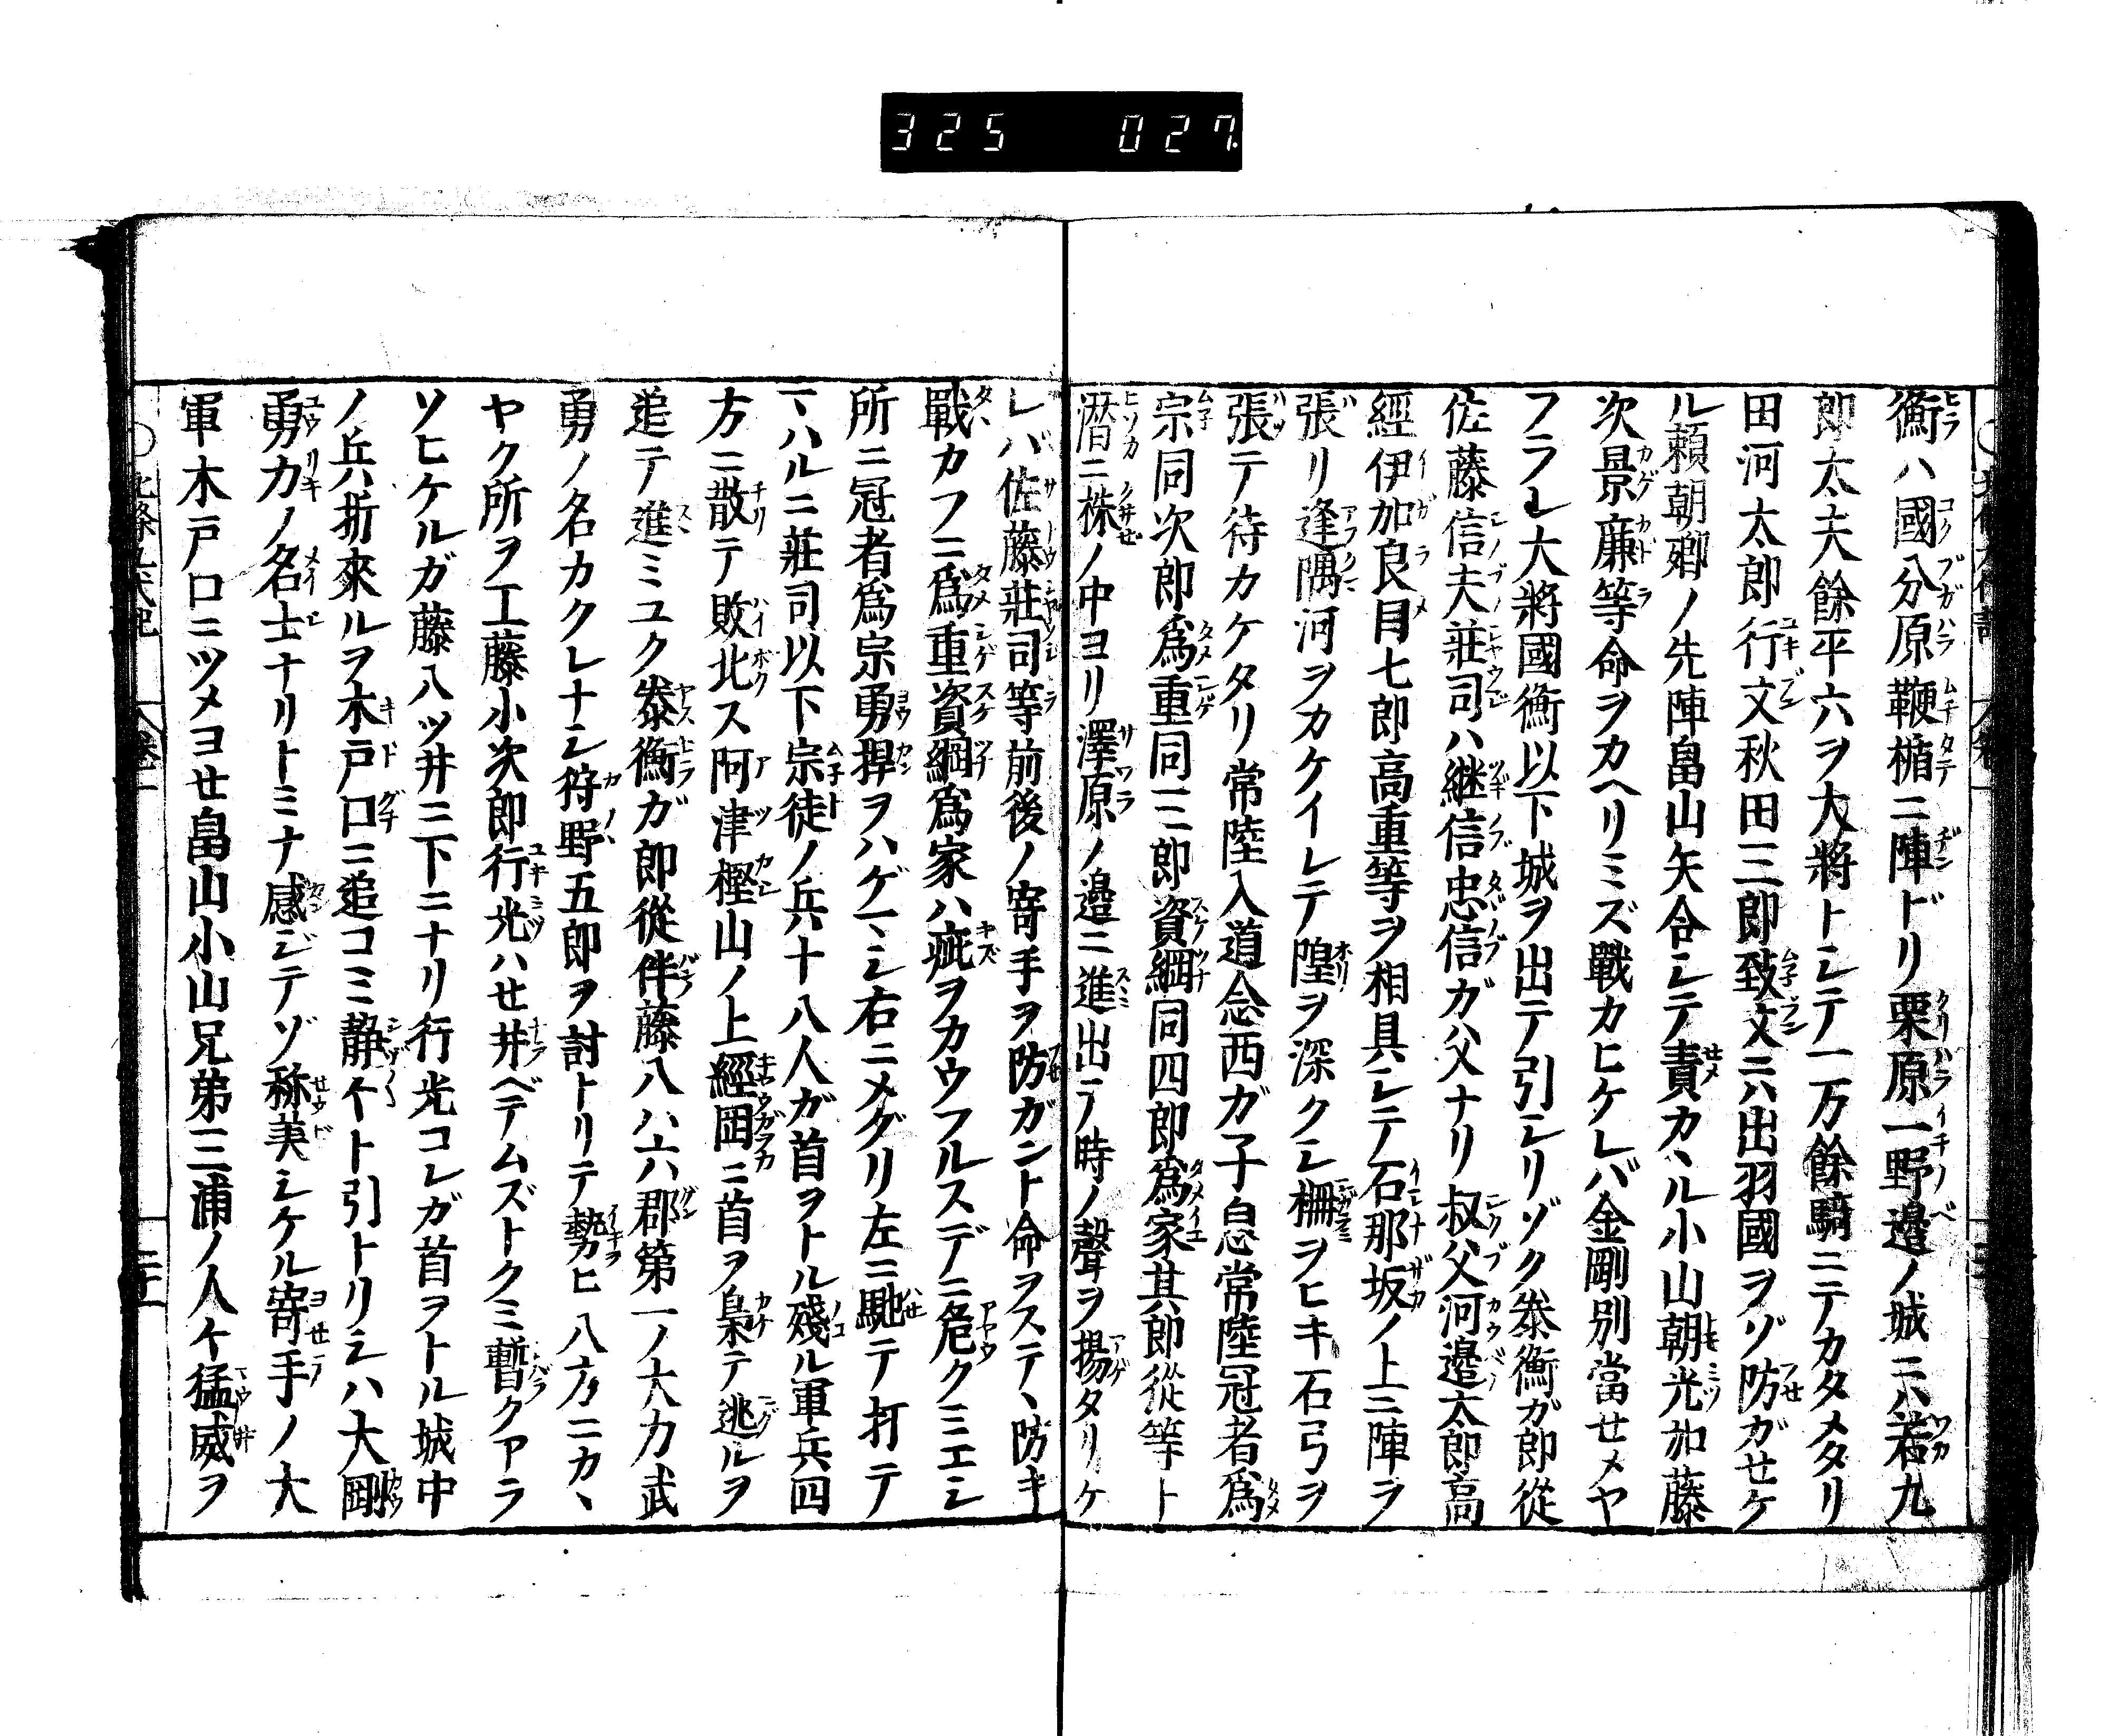 325 027
衡ハ國分原鞭楯ニ陣ドリ栗原一野邉ノ城ニハ若九
郎太夫餘平六ヲ大將トシテ一万餘騎ニテカタメタリ
田河太郎行文秋田三郎致文ニハ出羽國ヲゾ防ガセケ
ル頼朝卿ノ先陣畠山矢合シテ責カヽル小山朝光加藤
次景廉等命ヲカヘリミズ戰カヒケレバ金剛別當セメヤ
フラレ大將國衡以下城ヲ出テ引シリゾク泰衡ガ郎從
佐藤信夫莊司ハ継信忠信ガ父ナリ叔父河邉太郎高
經伊加良目七郎高重等ヲ相具シテ石那坂ノ上ニ陣ヲ
張リ逢隅河ヲカケイレテ隍ヲ深クシ柵ヲヒキ石弓ヲ
張テ待カケタリ常陸入道念西ガ子息常陸冠者爲
宗同次郎爲重同三郎資綱同四郎爲家其郎從等ト
潛ニ株ノ中ヨリ澤原ノ邉ニ進出テ時ノ聲ヲ揚タリケ
レバ佐藤莊司等前後ノ寄手ヲ防ガント命ヲステヽ防キ
戰カフニ爲重資綱爲家ハ疵ヲカウフルスデニ危クミエシ
所ニ冠者爲宗勇捍ヲハゲマシ右ニメグリ左ニ馳テ打テ
マハルニ莊司以下宗徒ノ兵十八人ガ首ヲトル殘ル軍兵四
方ニ散テ敗北ス阿津樫山ノ上經岡ニ首ヲ梟テ逃ルヲ
追テ進ミユク泰衡ガ郎從伴藤八ハ六郡第一ノ大力武
勇ノ名カクレナシ狩野五郎ヲ討トリテ勢ヒ八方ニカヽ
ヤク所ヲ工藤小次郎行光ハセ井ベテムズトクミ暫クアラ
ソヒケルガ藤八ツ井ニ下ニナリ行光コレガ首ヲトル城中
ノ兵折來ルヲ木戸口ニ追コミ静々ト引トリシハ大剛
勇力ノ名士ナリトミナ感ジテゾ称美シケル寄手ノ大
軍木戸口ニツメヨセ畠山小山兄弟三浦ノ人々猛威ヲ